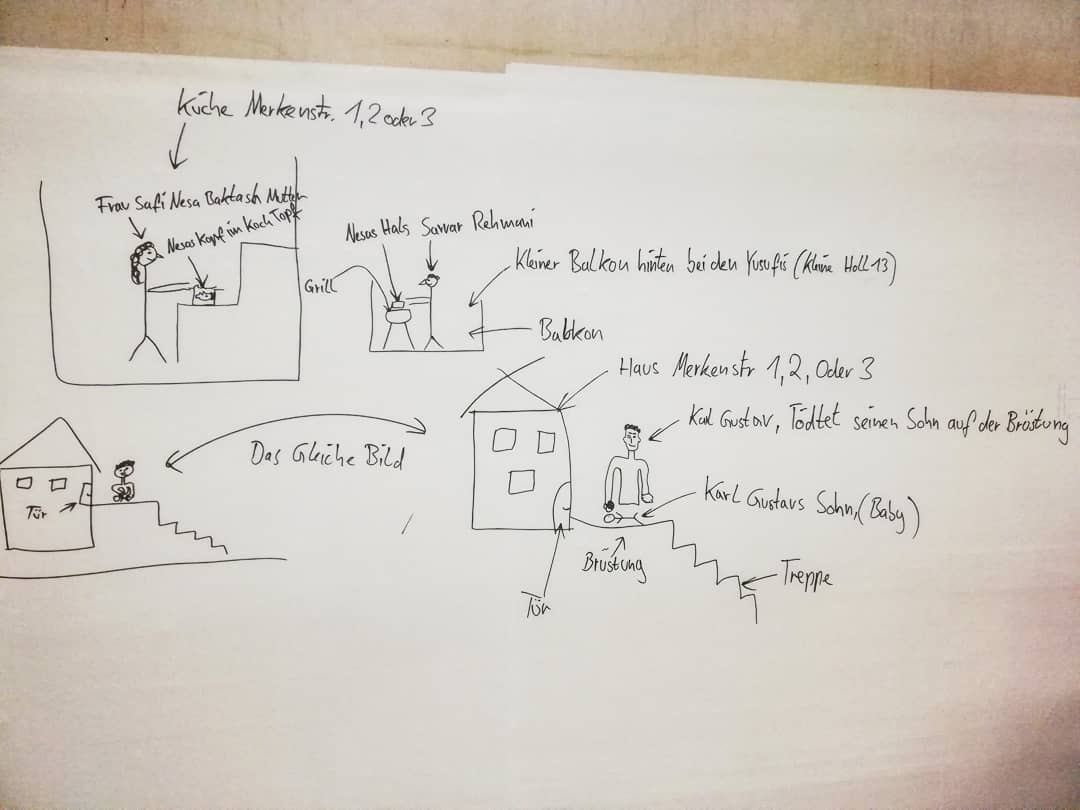 Küche Merkenstr. 1,2 oder 3
Frau Safi Nesa Baktash Mutter
Nesas Kopf im Koch Topf
Nesas Hals
Sarvar Rehmani
Grill
Kleiner Balkon hinten bei den Yusufis (Kleine Holl 13)
Balkon
Haus Merkenstr 1,2, Oder 3
Karl Gustav, Tödtet seinen Sohn auf der Brüstung
Das Gleiche Bild
Tür
Karl Gustavs Sohn, (Baby)
Brüstung
Treppe
Tür